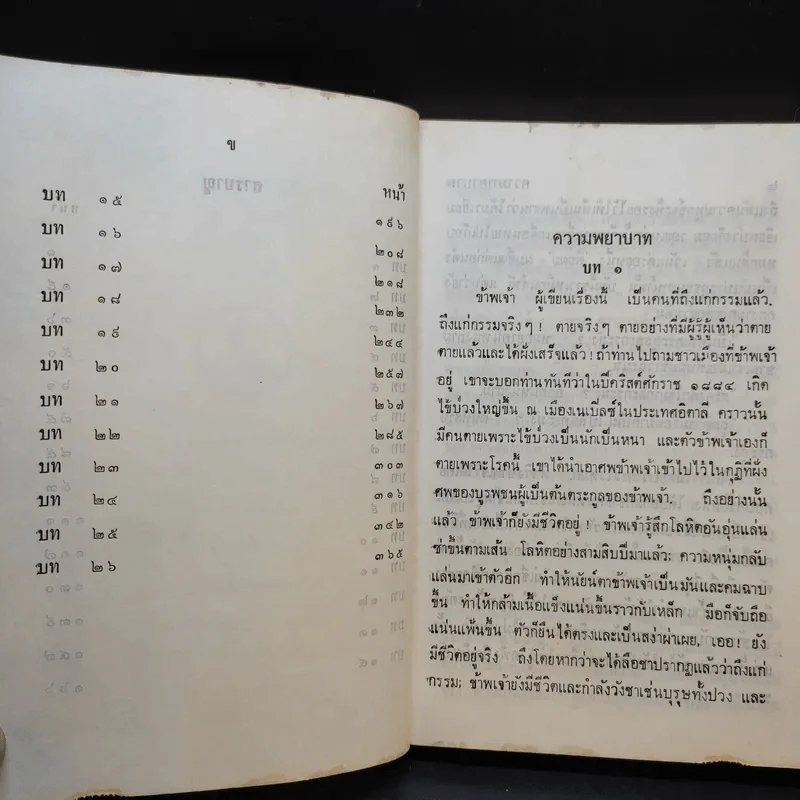 ข
หน้า
บท ๑๕ ๑๙๖
บท ๑๖ ๒๐๘
บท ๑๗ ๒๑๘
บท ๑๘ ๒๓๒
บท ๑๙ ๒๔๔
บท ๒๐ ๒๕๗
บท ๒๑ ๒๖๗
บท ๒๒ ๒๘๕
บท ๒๓ ๓๐๓
บท ๒๔ ๓๑๖
บท ๒๕ ๓๔๒
บท ๒๖ ๓๖๕
ความพยาบาท
บท ๑
ข้าพเจ้า ผู้เขียนเรื่องนี้ เป็นคนที่ถึงแก่กรรมแล้ว.
ถึงแก่กรรมจริงๆ! ตายจริงๆ ตายอย่างที่มีผู้รู้ผู้เห็นว่าตาย
ตายแล้วและได้ฝังเสร็จแล้ว! ถ้าท่านไปถามชาวเมืองที่ข้าพเจ้า
อยู่ เขาจะบอกท่านทันทีว่าในปีคริสต์ศักราช ๑๘๘๔ เกิด
ไข้บ่วงใหญ่ขึ้น ณ เมืองเนเปิ้ลซ์ในประเทศอิตาลี คราวนั้น
มีคนตายเพราะไข้บ่วงเป็นนักเป็นหนา และตัวข้าพเจ้าเองก็
ตายเพราะโรคนี้ เขาได้นำเอาศพข้าพเจ้าเข้าไปไว้ในกุฏิที่ฝัง
ศพของบูรพชนผู้เป็นต้นตระกูลของข้าพเจ้า. ถึงอย่างนั้น
แล้ว ข้าพเจ้าก็ยังมีชีวิตอยู่! ข้าพเจ้ารู้สึกโลหิตอันอุ่นแล่น
ซ่าขึ้นตามเส้น โลหิตอย่างสามสิบปีมาแล้ว: ความหนุ่มกลับ
แล่นมาเข้าตัวอีก ทำให้นัยน์ตาข้าพเจ้าเป็นมันและคมฉาบ
ขึ้น ทำให้กล้ามเนื้อแข็งแน่นขึ้นราวกับเหล็ก มือก็จับถือ
แน่นแฟ้นขึ้น ตัวก็ยืนได้ตรงและเป็นสง่าผ่าเผย. เออ! ยัง
มีชีวิตอยู่จริง ถึงโดยหากว่าจะได้ลือชาปรากฏแล้วว่าถึงแก่
กรรม: ข้าพเจ้ายังมีชีวิตและกำลังวังชาเช่นบุรุษทั้งปวง และ